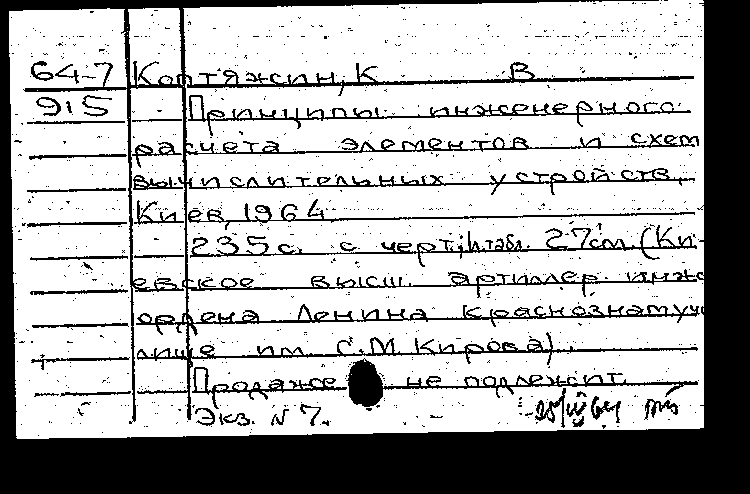 64-7 Коптяжин, К В
915 Принципы инженерного
расчета элементов и схем
вычислительных устройств,
Киев, 1964
235с. с черт., 27см. (Ки-
евское высш. артиллер. инж.
ордена Ленина Краснознам учи
лище им. С.М. Кирова).
Продаже не подлежит.
Экз. N 7.